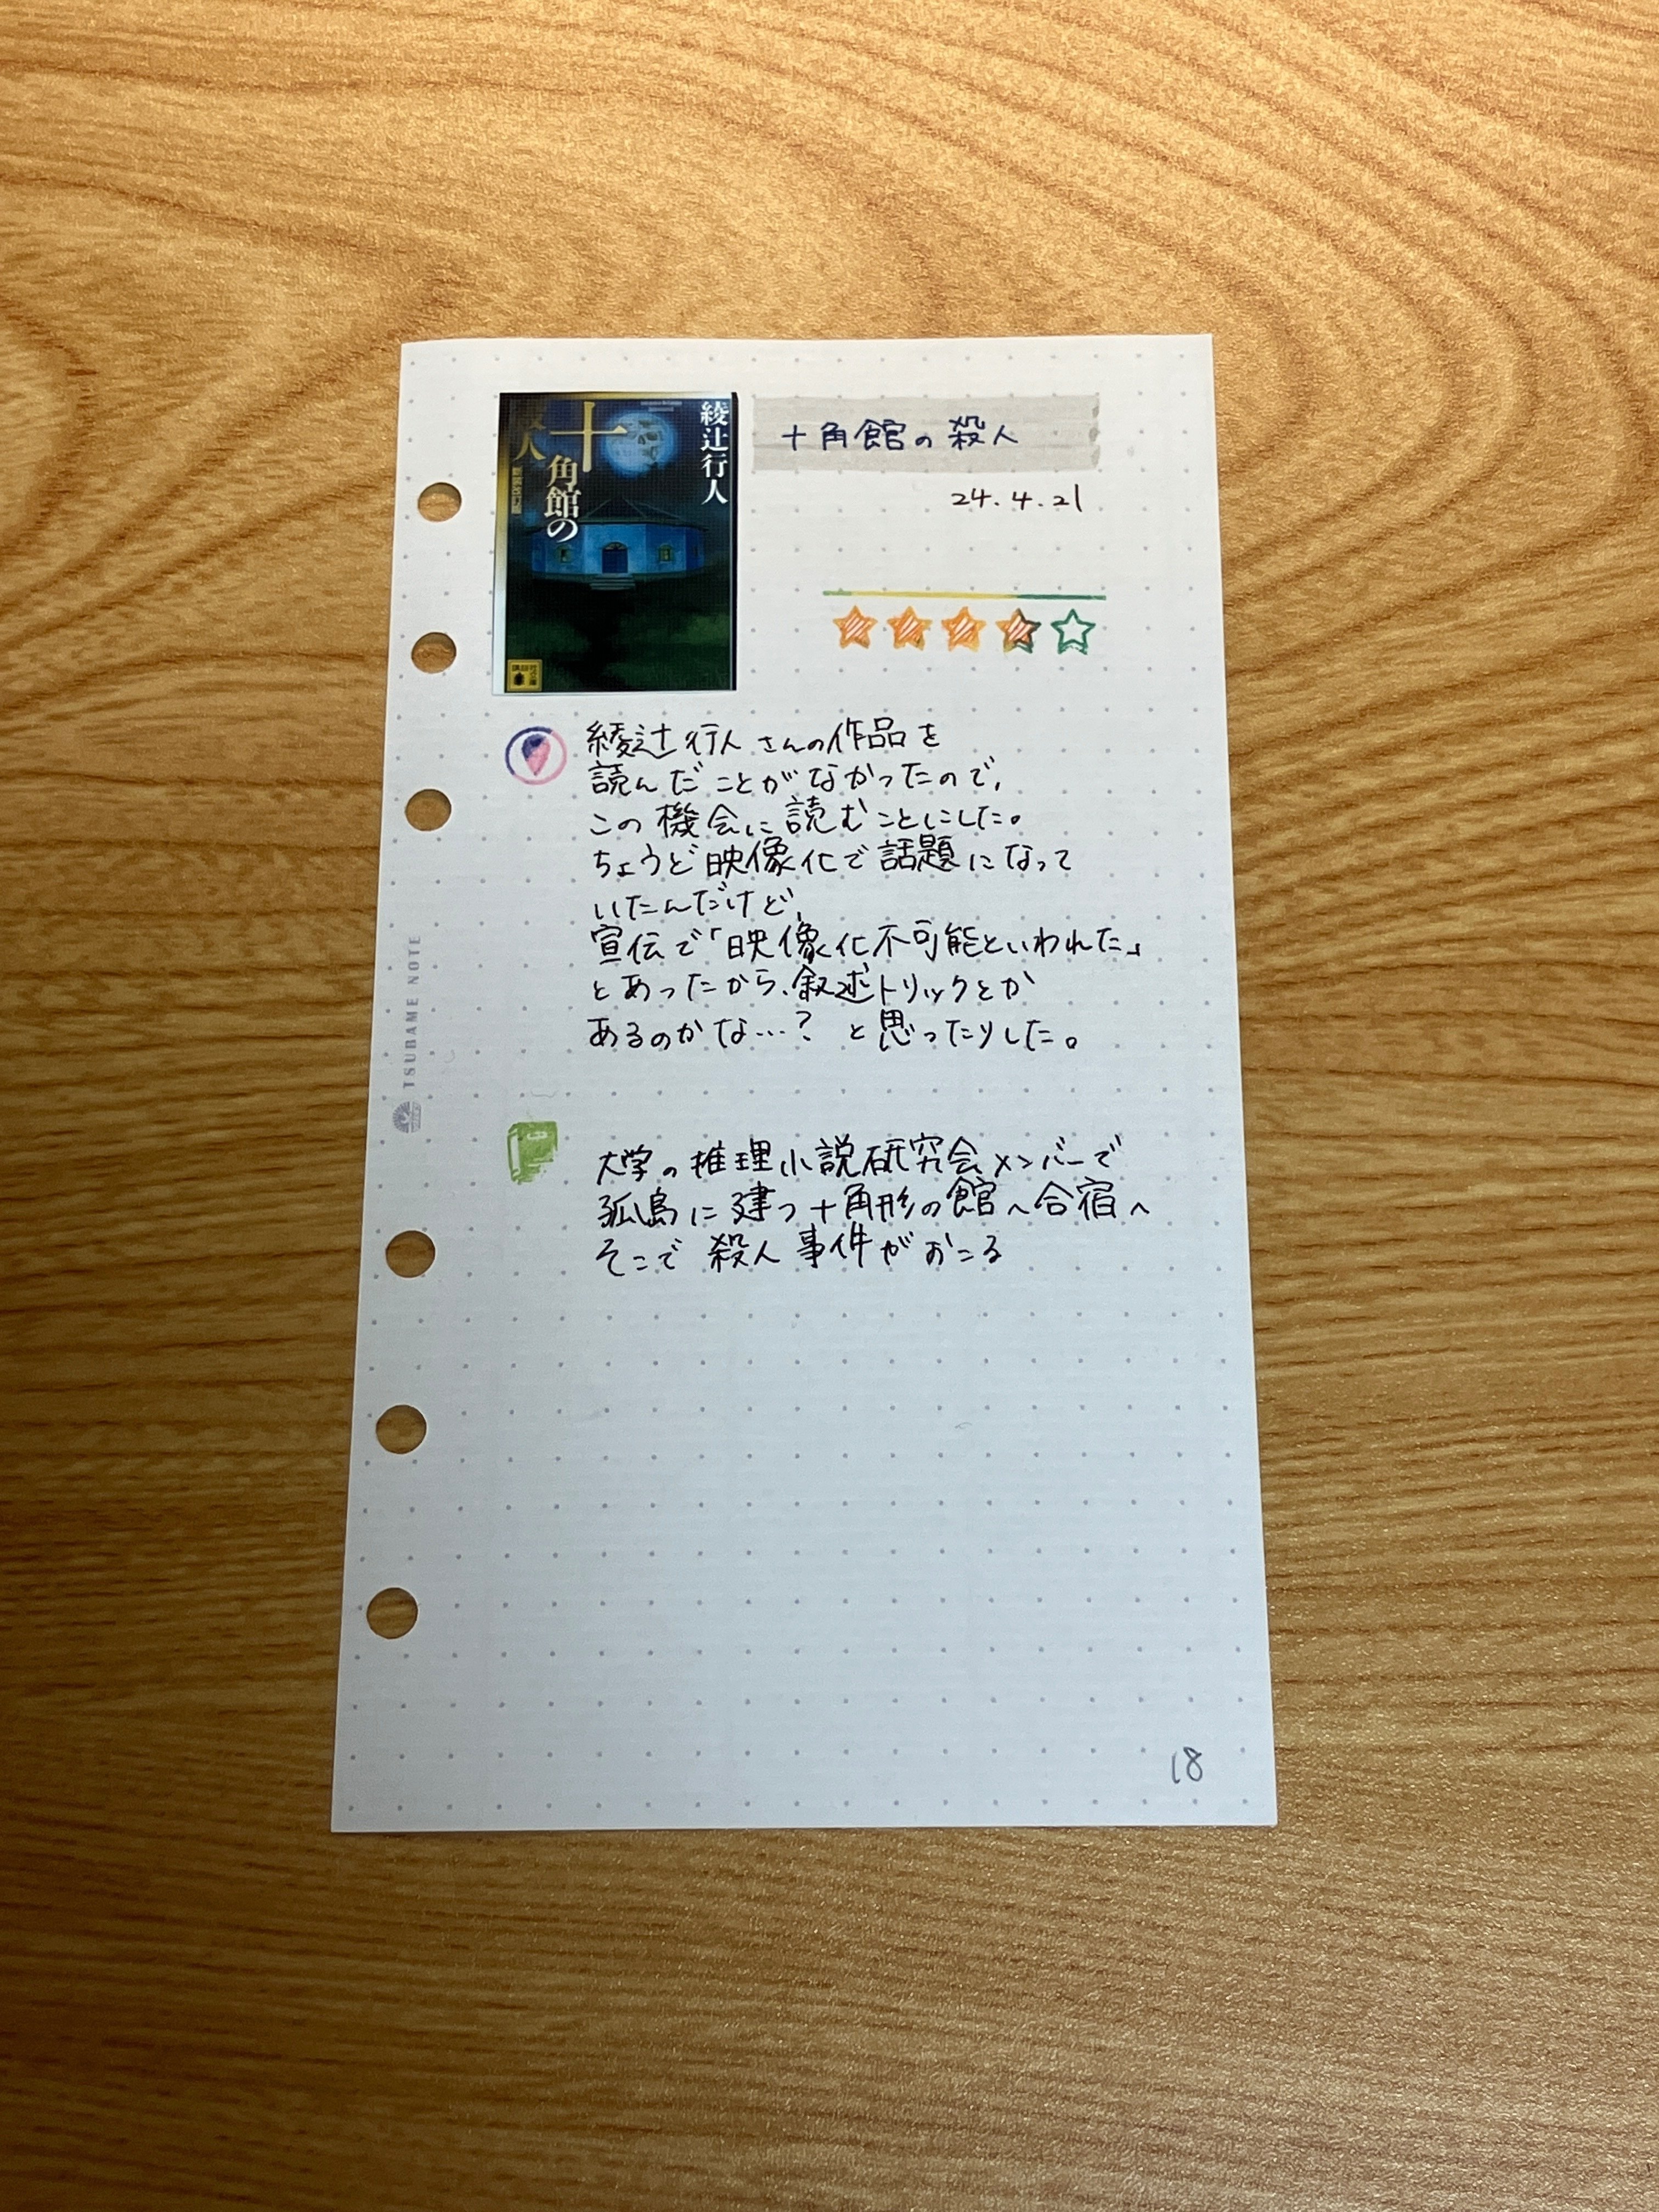 綾辻行人
十角館の
殺人
新装改訂版
講談社
文庫
十角館の殺人
24.4.21
綾辻行人さんの作品を
読んだことがなかったので、
この機会に読むことにした。
ちょうど映像化で話題になって
いたんだけど、
宣伝で「映像化不可能といわれた」
とあったから、叙述トリックとか
あるのかな…? と思ったりした。
大学の推理小説研究会メンバーで
孤島に建つ十角形の館へ合宿へ
そこで殺人事件がおこる
TSUBAME NOTE
18